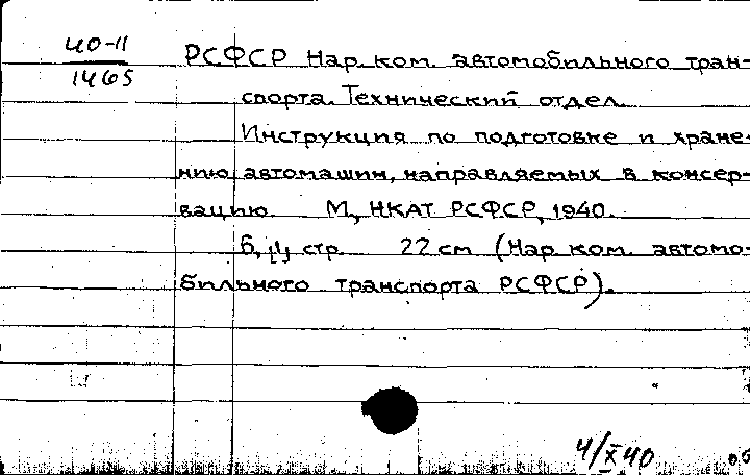 40-11
1465
РСФСР Нар. ком. автомобильного тран-
спорта. Технический отдел.
Инструкция по подготовке и хране-
нию автомашин, направляемых в консер-
вацию. М, НКАТ РСФСР, 1940.
6, стр. 22 см (Нар. ком. автомо-
бильного транспорта РСФСР).
4/X 40